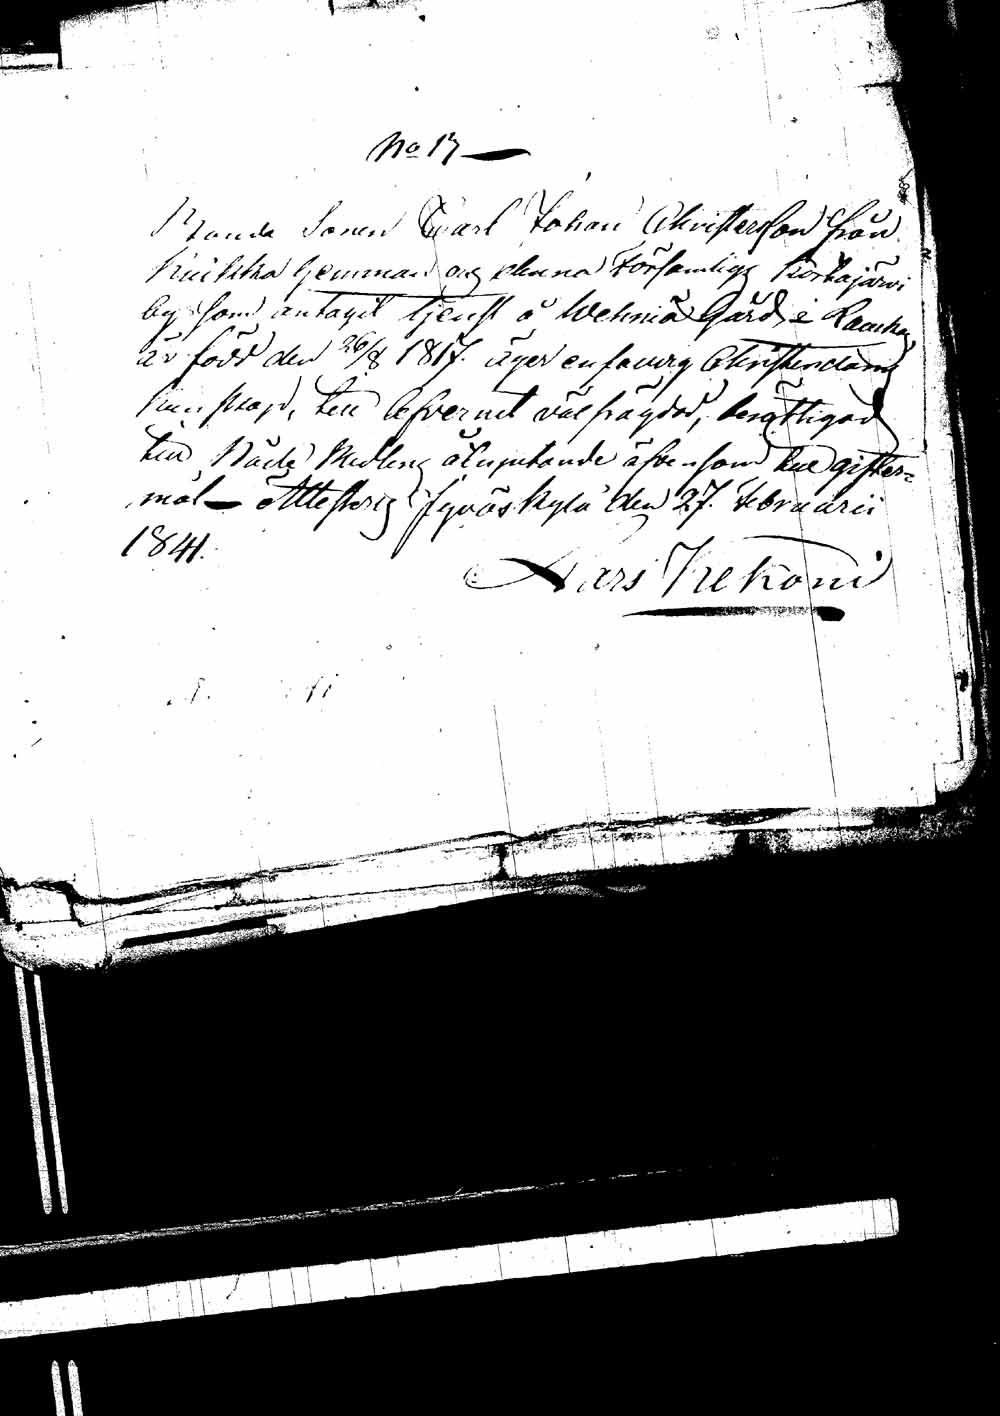 No 17
Bonde Sonen Carl Johan Christersson från
Kuikka Hemman og denna Församlings Kortajärvi
by som antagit tjenst å Wehniä Gård i Laukas
är född den 26/8 1817. äger enfaurg Christendoms
kunskap, till lefvernet välfrägdad, berättigad
till Nåde Medlens åtnjutande äfvensom till gifter=
mål — Attesterg Jyväskylä den 27. Februarii
1841.
Lars Kekoni